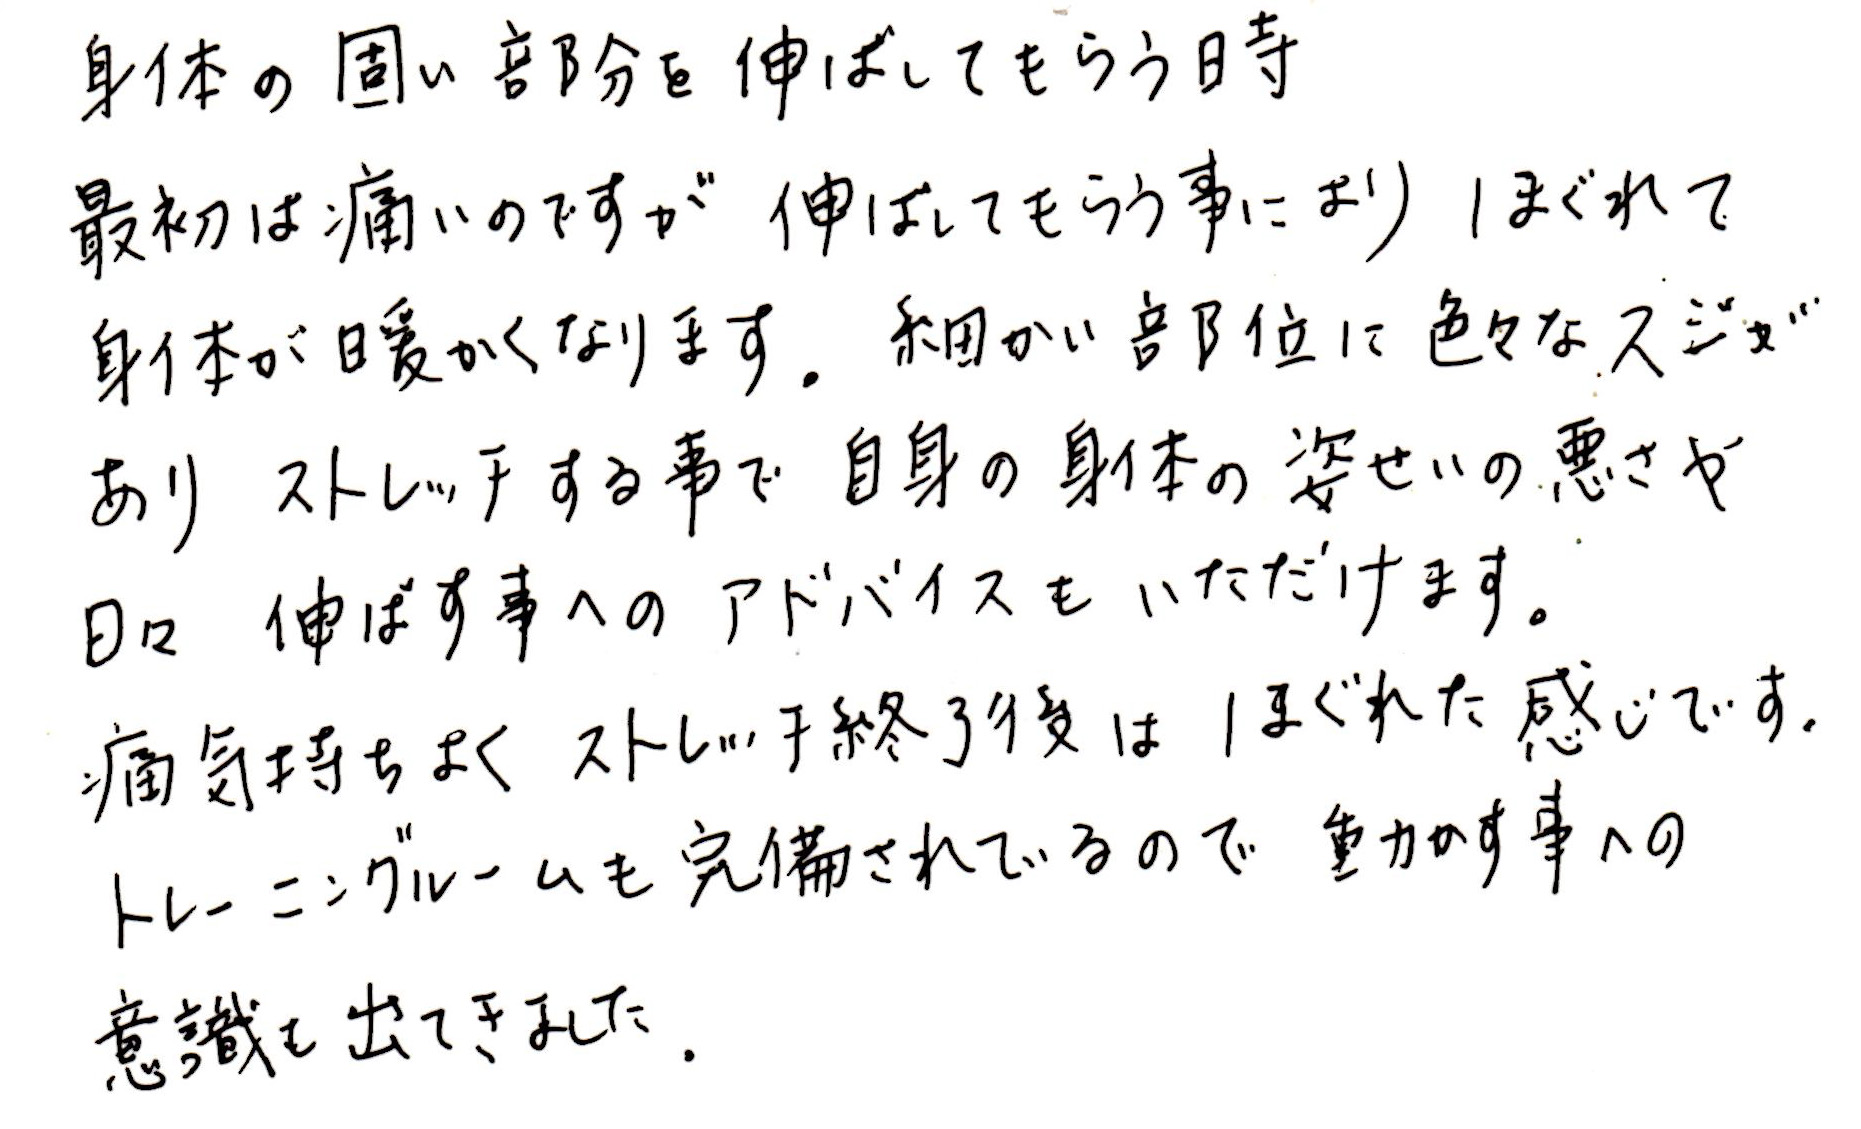 身体の固い部分を伸ばしてもらう時
最初は痛いのですが 伸ばしてもらう事により ほぐれて
身体が暖かくなります。 細かい部位に色々なスジが
あり ストレッチする事で 自身の身体の姿せいの悪さや
日々 伸ばす事へのアドバイスもいただけます。
痛気持ちよく ストレッチ終了後は ほぐれた感じです。
トレーニングルームも完備されているので 動かす事への
意識も出てきました。